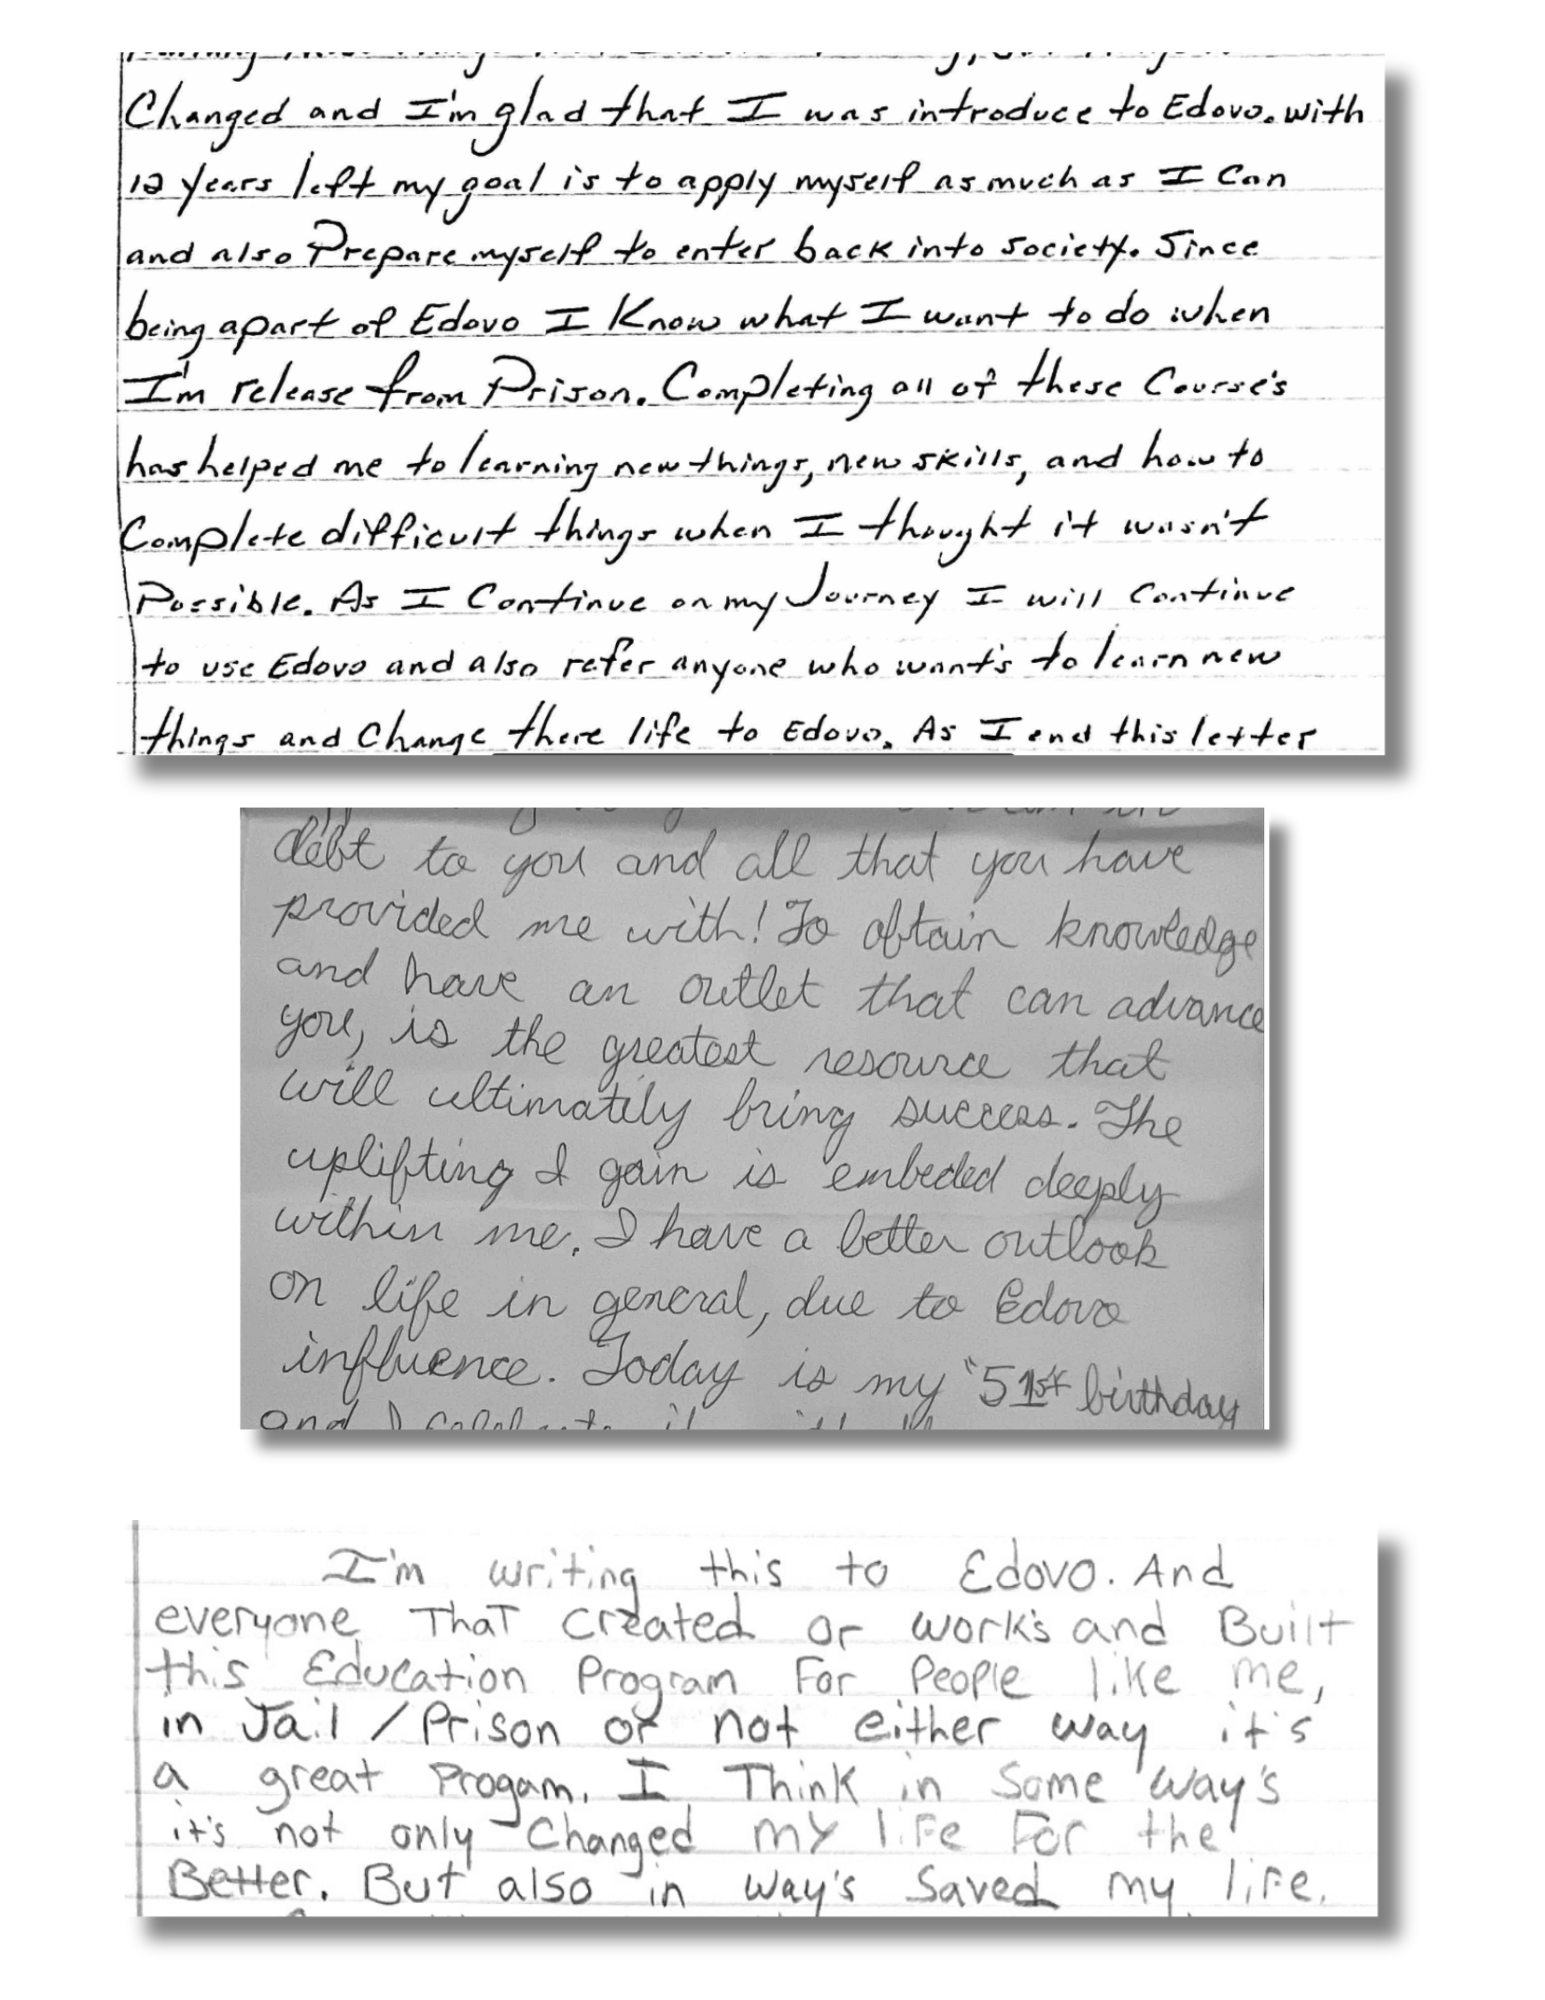 Changed and I'm glad that I was introduce to Edovo. with
12 years left my goal is to apply myself as much as I Can
and also Prepare myself to enter back into society. Since
being apart of Edovo I Know what I want to do when
I'm release from Prison. Completing all of these Course's
has helped me to learning new things, new skills, and how to
Complete difficult things when I thought it wasn't
Possible. As I Continue on my Journey I will Continue
to use Edovo and also refer anyone who want's to learn new
things and Change there life to Edovo. As I end this letter
debt to you and all that you have
provided me with! To obtain knowledge
and have an outlet that can advance
you, is the greatest resource that
will ultimately bring success. The
uplifting I gain is embeded deeply
within me. I have a better outlook
on life in general, due to Edovo
influence. Today is my "51st birthday
and I celebrate it
I'm writing this to Edovo. And
everyone That Created or work's and Built
this Education Program For People like me,
in Jail / Prison or not either way it's
a great Progam. I Think in Some way's
it's not only Changed my life For the
Better. But also in way's Saved my life.